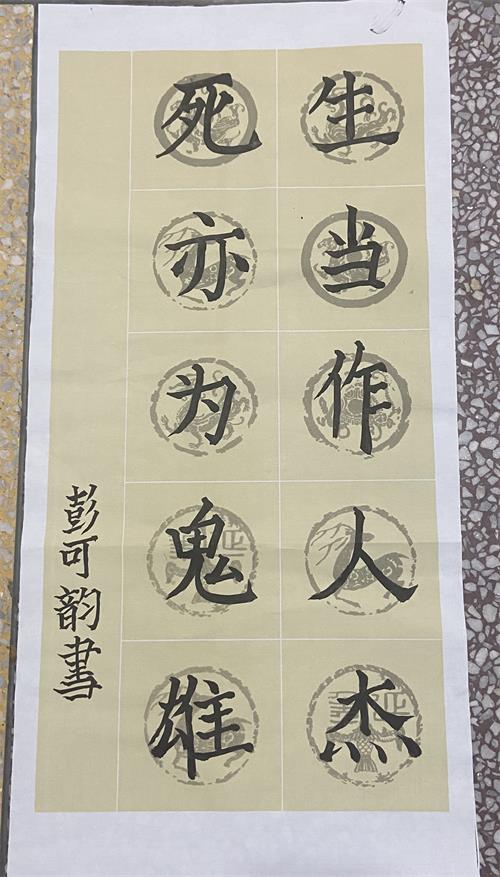 生当作人杰
死亦为鬼雄
彭可韵書